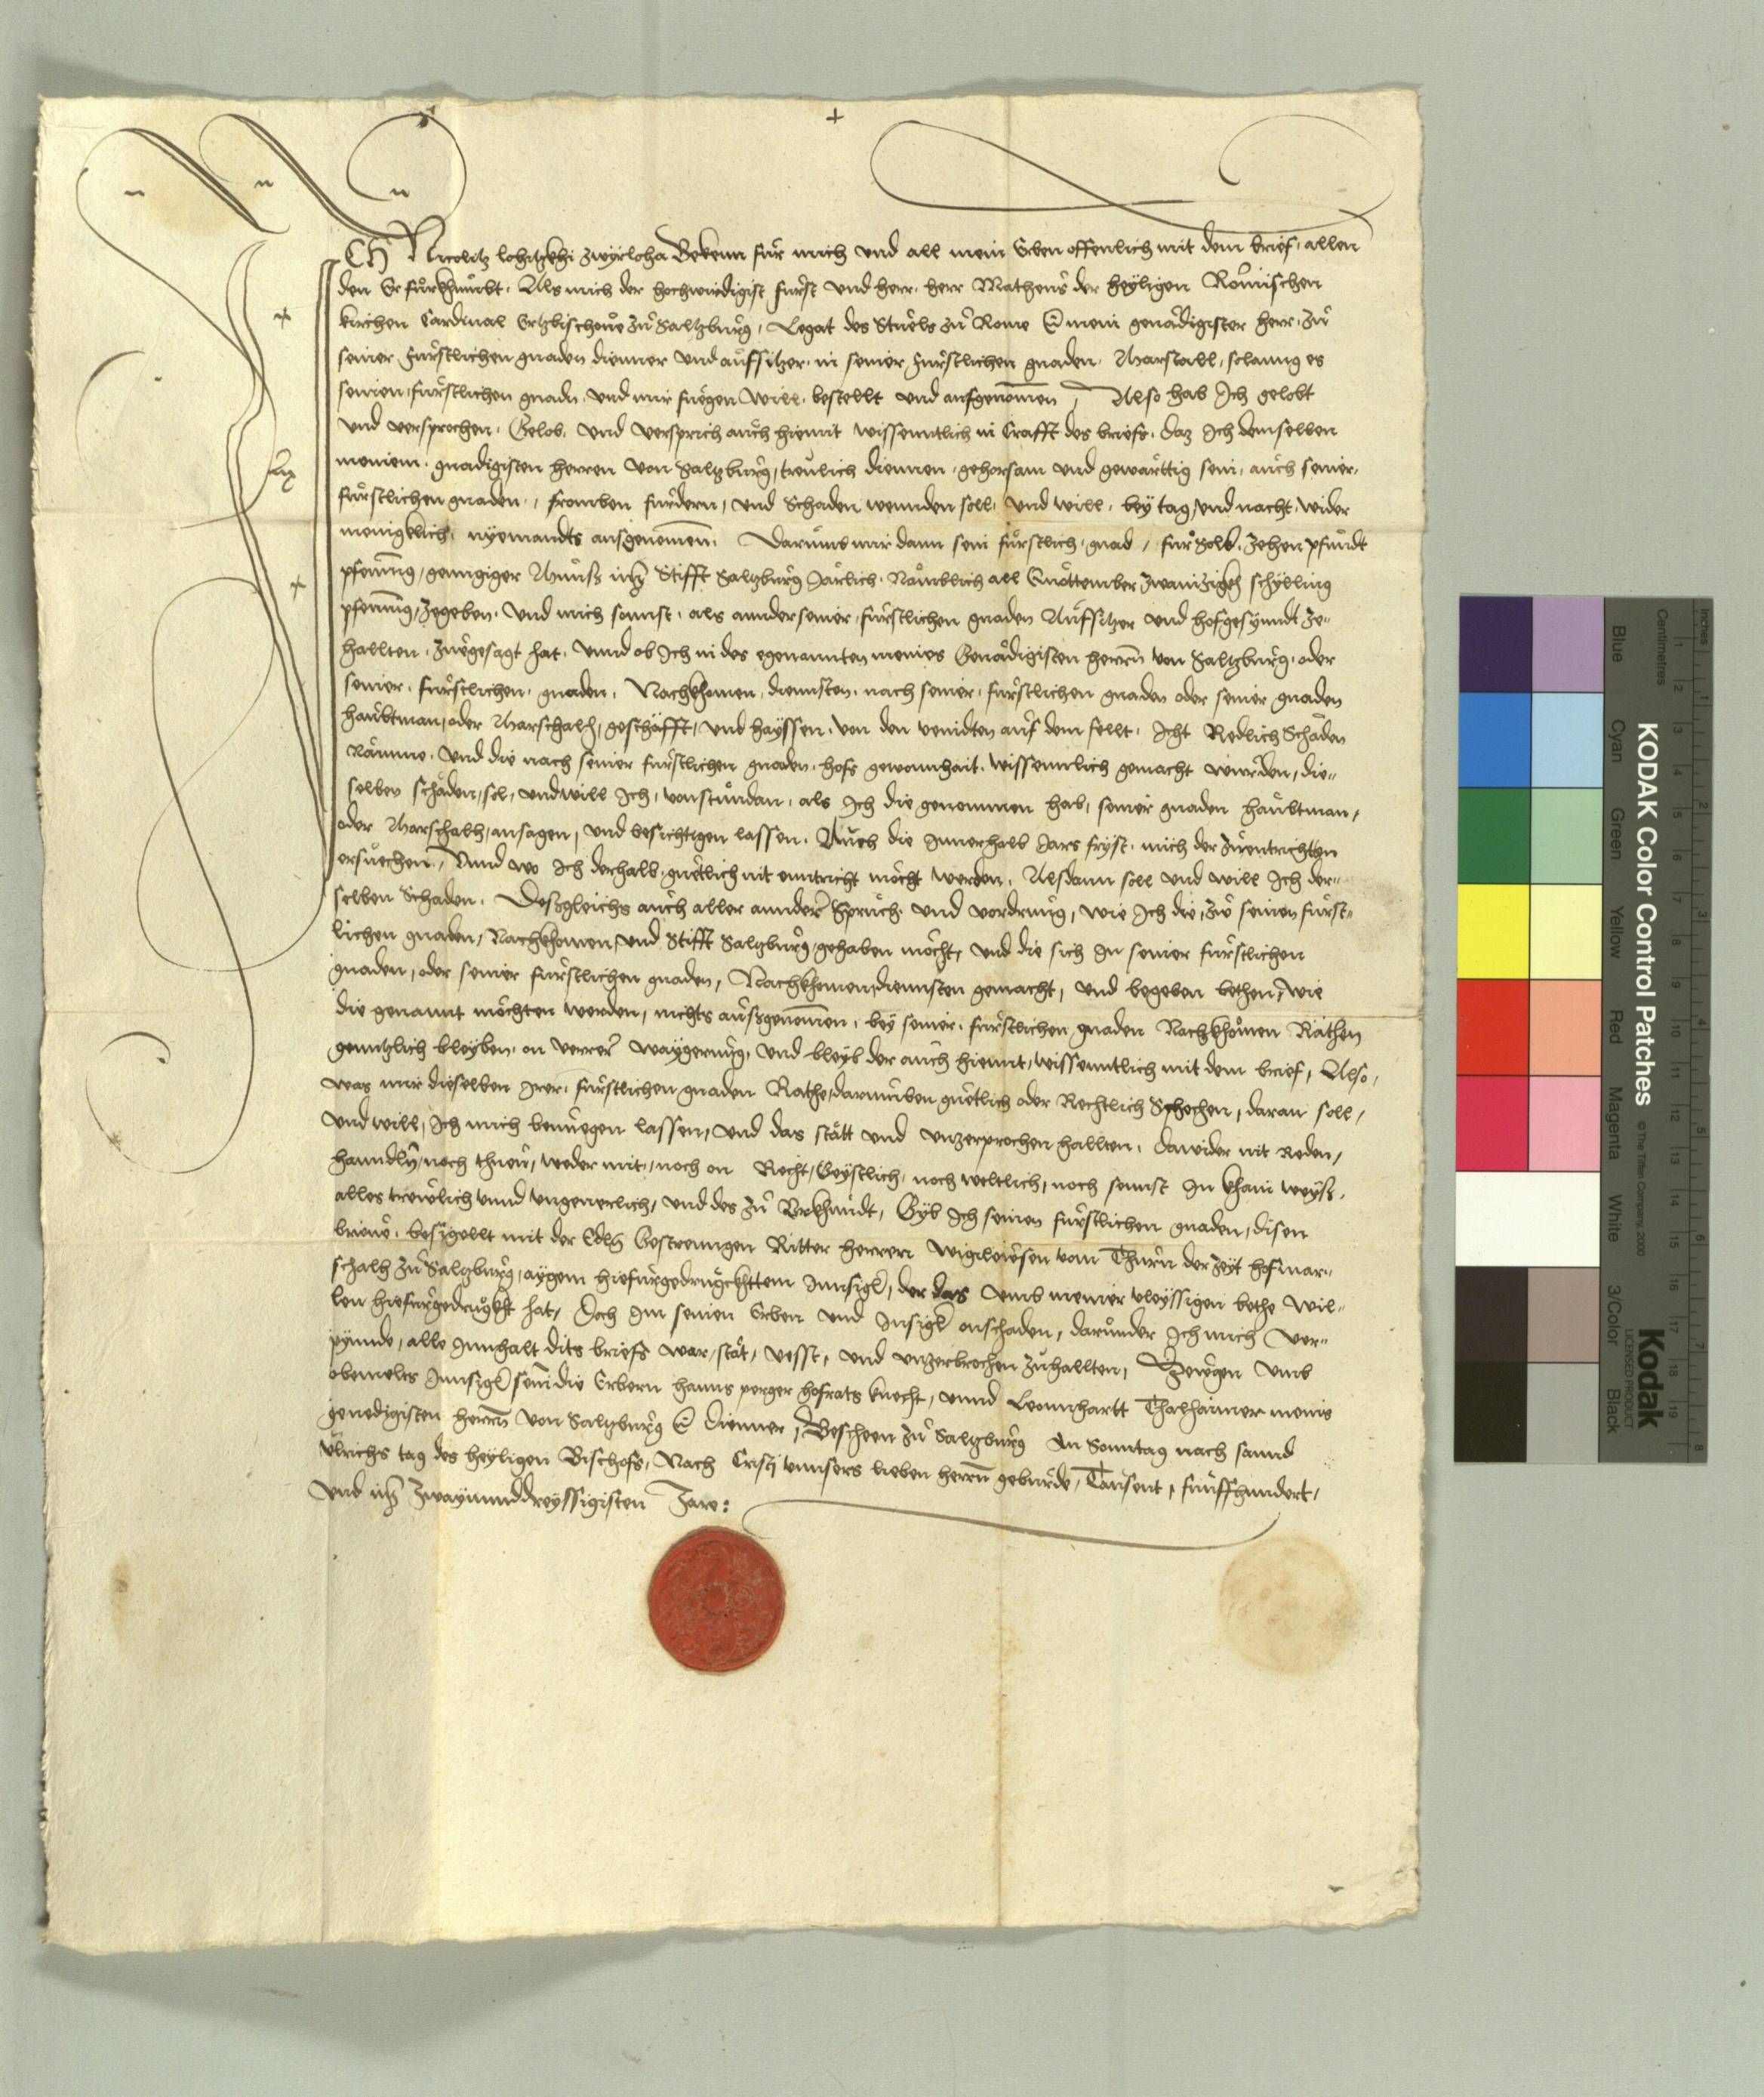 ICH Nicolitz lohitzkhi zwyrloha Bekenn für mich und all mein Erben offenlich mit dem brief, allen
den Er fürkhumbt. Als mich der hochwirdigist Fürst und herr, herr Matheus der heyligen Römischen
kirchen Cardinal Ertzbischoue zu Saltzburg, Legat des Stuels zu Rome &c mein genädigister herr, zu
seiner Fürstlichen gnaden diener und aufsitzer, in seiner Fürstlichen gnaden Marstall, solanng es
seinen fürstlichen gnadn und mir fuegen will, bestellt und aufgenomen, Also hab Ich gelobt
und versprochen, Gelob, und versprich auch hiemit wissenntlich in Crafft des briefs, daz Ich demselben
meinem gnädigisten herren von Saltzburg, treulich diennen, gehorsam und gewärttig sein, auch seiner
fürstlichen gnaden, fromben furdern, und Schaden wennden soll, und will, bey tag und nacht, wider
menigklich, nyemandts ausgenomen. Darumb mir dann sein fürstlich gnad, für Sold, zehen pfundt
pfening, genngiger Münß im Stifft Saltzburg Järlich, Nämblich all Quottember zwainzigkh schylling
pfening, zegeben, und mich sonnst, als annder seiner fürstlichen gnaden Aufsitzer und hofgesynndt ze-
hallten, zuegesagt hat, Unnd ob Ich in des egenannten meines Genädigisten herrn von Saltzburg, oder
seiner fürstlichen gnaden, Nachkhomen, diennsten, nach seiner fürstlichen gnaden oder seiner gnaden
haubtman, oder Marschalh, geschäfft, und hayssen, von den veindten auf dem fellt, Icht Redlich Schäden
Nämme, und die nach seiner fürstlichen gnaden hofs gewonnhait, wissennlich gemacht wurden, die-
selben schäden, sol, und will Ich, vonstundan, als Ich die genommen hab, seiner gnaden haubtman,
oder Marschalh, ansagen, und besichtigen lassen, Auch die Innerhalb Jars fryst, mich der zu entrichtn
ersuechen, Unnd wo Ich derhalb guetlich nit enntricht möcht werden, Alsdann soll und will Ich der-
selben Schaden, Deßgleichs auch aller annderer Spruch und vordrung, wie Ich die, zu seinen fürst-
lichen gnaden, Nachkhomen, und Stifft Saltzburg, gehaben möcht, und die sich In seiner fürstlichen
gnaden, oder seiner fürstlichen gnaden, Nachkhomen, diennsten gemacht, und begeben hethen, wie
die genannt möchten werden, nichts außgenomen, bey seiner fürstlichen gnaden Nachkhomen Räthen
genntzlich bleyben, on verrer waygerung, und bleyb der auch hiemit, wissenntlich mit dem brief, Also,
was mir dieselben Irer, fürstlichen gnaden Räthe, darumben guetlich oder Rechtlich Sprechen, daran soll,
und will, Ich mich benuegen lassen, und das stätt und unzerprochen hallten, dawider nit Reden,
hanndln, noch thuen, weder mit, noch on Recht, Geystlich, noch weltlich, noch sonnst In khain weyß,
alles treulich unnd ungeuerlich, und des zu Urkhundt, Gyb Ich seinen fürstlichen gnaden, disen
brieue, besigellt mit der Edln Gestrenngen Ritter herren Wigileisen vom Thurn der zeyt hofmar-
schalh zu Saltzburg, aygem hiefürgedruckhttem Innsigl, der das umb meiner vleyssigen bethe wil-
len hiefürgedrugkht hat, Doch Im seinen Erben und Insigl onschaden, darunder Ich mich ver-
pynnde, alle Innhalt dits briefs war, stät, vesst, und unzerbrochen zuhallten, Zeugen umb
obemelts Innsigl sein die Erbern hanns perger hofrats knecht, unnd Leonnhartt Thalhaimer meins
genedigisten herrn von Saltzburg &c Dienner, Bescheen zu Saltzburg An Sonntag nach sannd
Ulrichs tag des heyligen Bischofs, Nach Cristi unnsers lieben herrn geburde, Tausent, funffhundert,
und im zwayunnddreyssigisten Jare:
KODAK Color Control Patches
© The Tiffen Company, 2000
Kodak
LICENSED PRODUCT
Blue Cyan Green Yellow Red Magenta White 3/Color Black
Inches 1 2 3 4 5 6 7 8
Centimetres 1 2 3 4 5 6 7 8 9 10 11 12 13 14 15 16 17 18 19